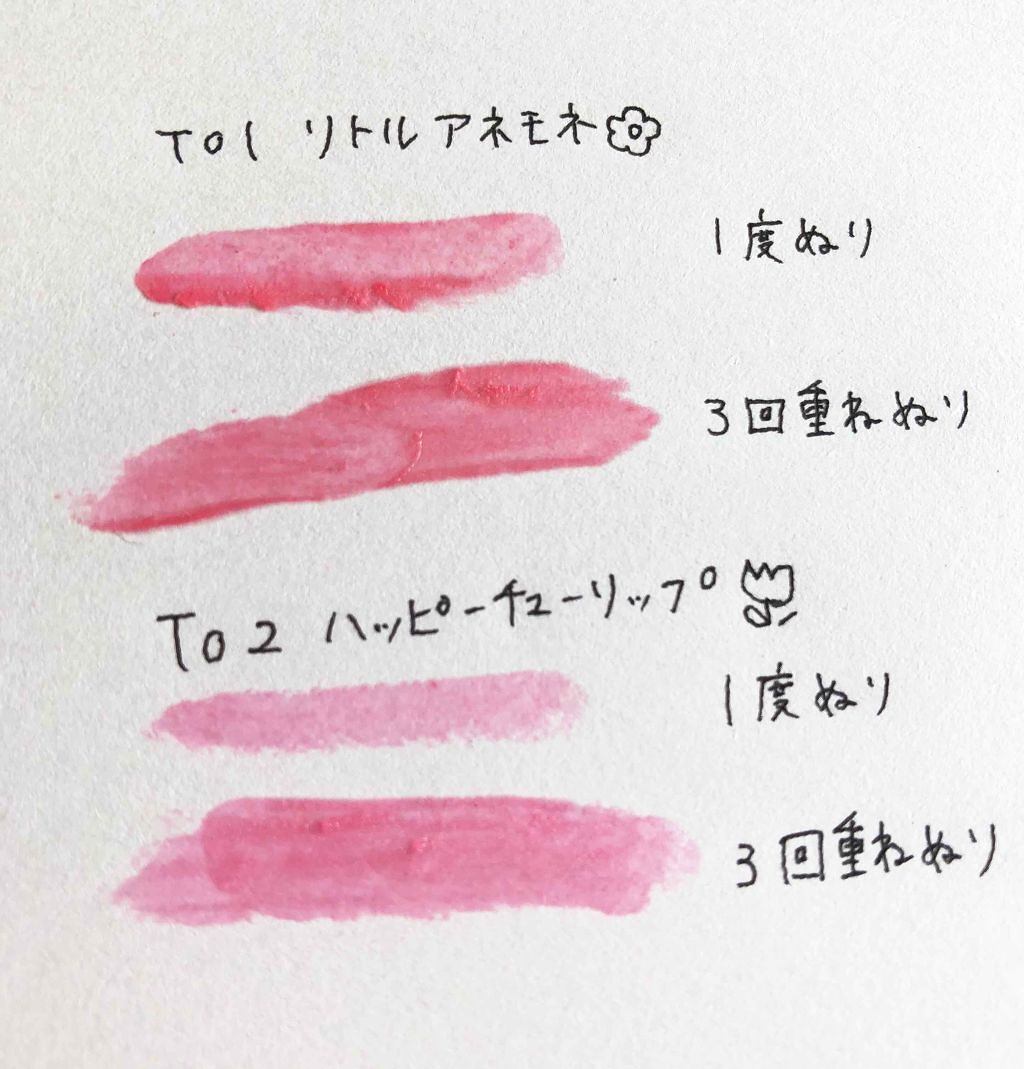 T01 リトルアネモネ
1度ぬり
3回重ねぬり
T02 ハッピーチューリップ
1度ぬり
3回重ねぬり